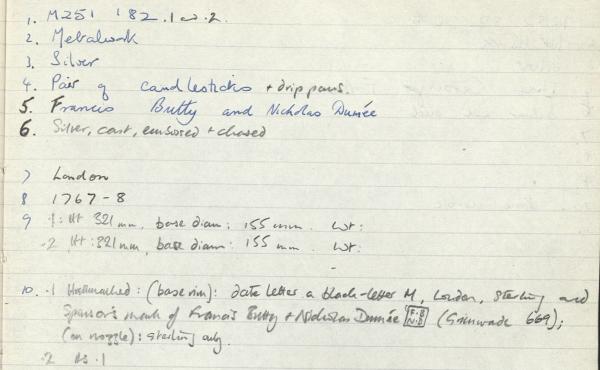 1. M251 '82. 1 & 2.
2. Metalwork
3. Silver
4. Pair of candlesticks + drip pans.
5. Francis Butty and Nicholas Dumée
6. Silver, cast, embossed + chased
7 London
8 1767-8
9 .1: Ht 321mm, base diam: 155 mm. Wt:
.2 Ht: 321mm, base diam: 155 mm. Wt:
10. .1 Hallmarked: (base rim): date letter a black-letter M, London, sterling and
Sponsor's mark of Francis Butty + Nicholas Dumée F.B N.D (Grimwade 669);
(on nozzle): sterling only.
.2 As .1